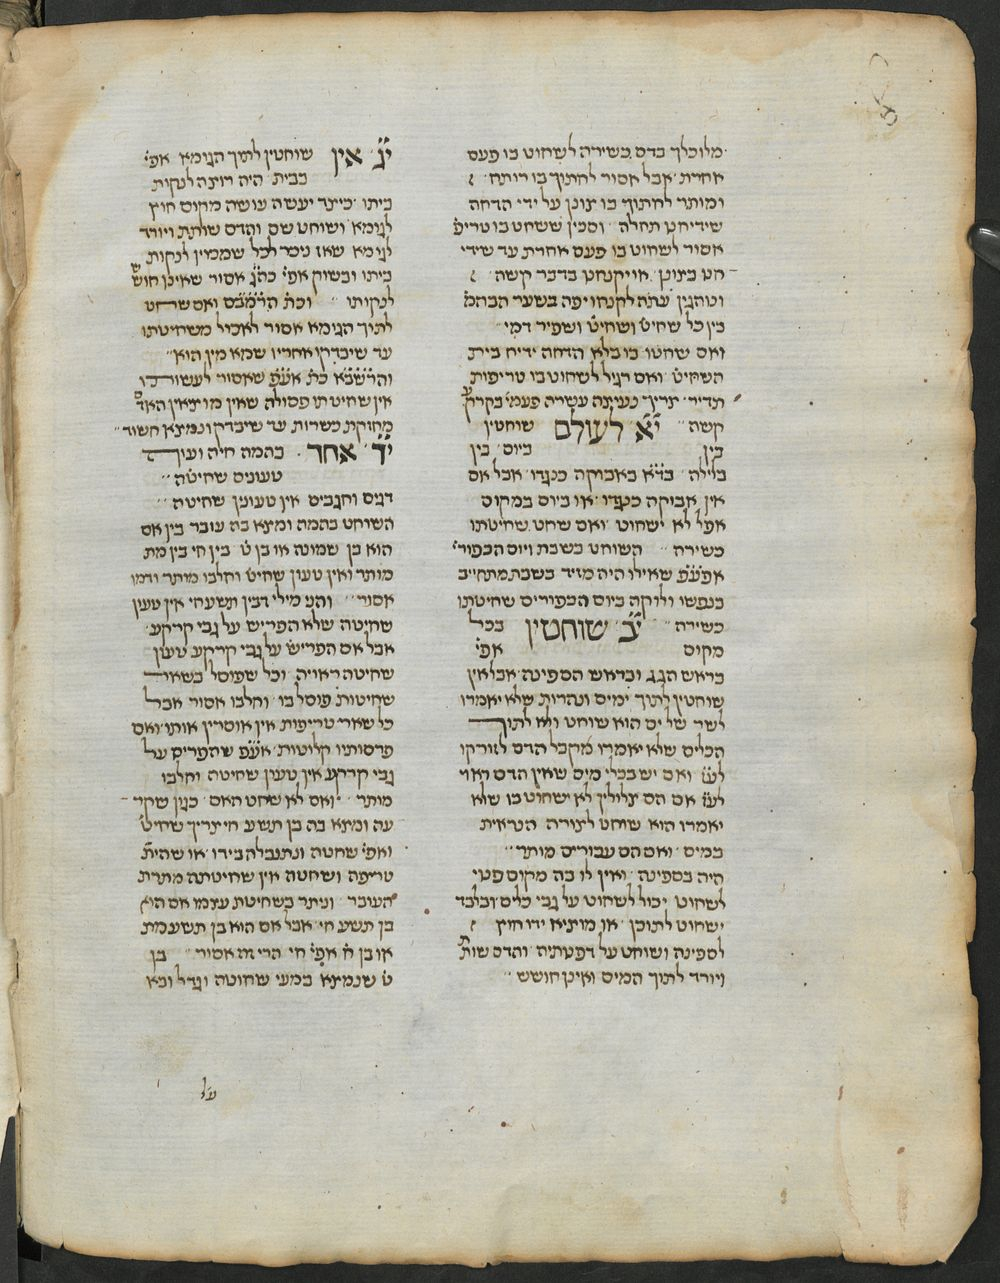 מלוכלך בדם כשירה לשחוט בו פעם
אחרת אבל אסור לחתוך בו רותח
ומותר לחתוך בו צונן על ידי הדחה
שידיחנו תחלה וסכין ששחט בו טריפ׳
אסור לשחוט בו פעם אחרת עד שידי
חנו בצונן או יקנחנו בדבר קשה
ונוהגין עתה לקנחו יפה בשער הבהמ׳
בין כל שחיט׳ ושחיט׳ ושפיר דמי
ואם שחטו בו בלא הדחה ידיח בית
השחיט׳ ואם רגיל לשחוט בו טריפות
תדיר צריך נעיצה עשרה פעמי׳ בקרקע
קשה י״א לעולם שוחטין
בין ביום בין
בלילה בד״א באבוקה כנגדו אבל אם
אין אבוקה כנגדו או ביום במקום
אפל לא ישחוט ואם שחט שחיטתו
כשירה השוחט בשבת ויום הכפור׳
אפע״פ שאילו היה מזיד בשבת מתחייב
בנפשו ולוקה ביום הכפורים שחיטתו
כשירה י״ב שוחטין בכל
מקום אפי׳
בראש הגג ובראש הספינה אבל אין
שוחטין לתוך ימים ונהרות שלא יאמרו
לשר של ים הוא שוחט ולא לתוך
הכלים שלא יאמרו מקבל הדם לזורקו
לע״ז ואם יש בכלי מים שאין הדם ראוי
לע״ז אם הם צלולין לא ישחוט בו שלא
יאמרו הוא שוחט לצורה הנראית
במים ואם הם עכורים מותר
היה בספינה ואין לו בה מקום פנוי
לשחוט יכול לשחוט על גבי כלים ובלבד
ישחוט לתוכן או מוציא ידו חוץ
לספינה ושוחט על דפנותיה והדם שותת
ויורד לתוך המים ואינו חושש
י״ג אין שוחטין לתוך הגומא אפי׳
בבית היה רוצה לנקות
ביתו כיצד יעשה עושה מקום חוץ
לגומא ושוחט שם והדם שותת ויורד
לגומא שאז ניכר לכל שמכוין לנקות
ביתו ובשוק אפי׳ כה״ג אסור שאינו חושש
לנקותו וכת׳ הרמב״ם ואם שחט
לתוך הגומא אסור לאכול משחיטתו
עד שיבדקו אחריו שמא מין הוא
והרשב״א כת׳ אע״פ שאסור לעשות כן
אין שחיטתו פסולה שאין מוציאין האדם
מחזקת כשרות עד שיבדקו ונמצא חשוד
י״ד אחד בהמה חיה ועוף
טעונים שחיטה
דגים וחגבים אין טעונין שחיטה
השוחט בהמה ומצא בה עובר בין אם
הוא בן שמונה או בן ט׳ בין חי בין מת
מותר ואין טעון שחיט׳ וחלבו מותר ודמו
אסור והני מילי דבן תשע חי אין טעון
שחיטה שלא הפריס על גבי קרקע
אבל אם הפריס על גבי קרקע טעון
שחיטה ראויה וכל שפוסל בשאר
שחיטות פוסל בו וחלבו אסור אבל
כל שאר טריפות אין אוסרין אותו ואם
פרסותיו קלוטות אע״פ שהפריס על
גבי קרקע אין טעון שחיטה וחלבו
מותר ואם לא שחט האם כגון שקר
עה ומצא בה בן תשע חי צריך שחיט׳
ואפי׳ שחטה ונתנבלה בידו או שהית׳
טריפה ושחטה אין שחיטתה מתרת
העובר וניתר בשחיטת עצמו אם הוא
בן תשע חי אבל אם הוא בן תשע מת
או בן ח׳ אפי׳ חי הרי זה אסור בן
ט׳ שנמצא במעי שחוטה וגדל ובא
על